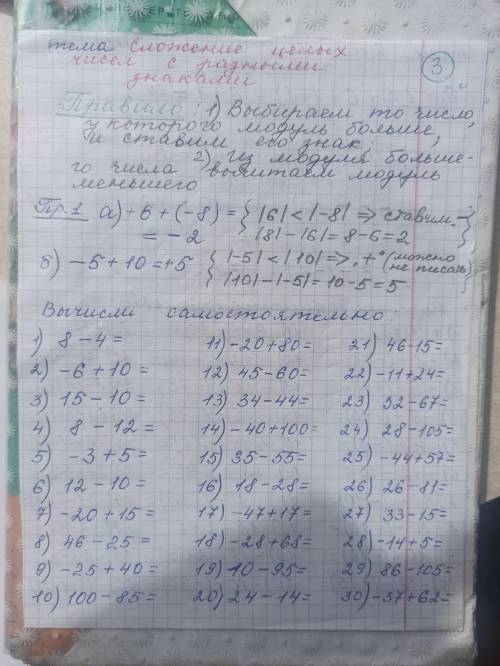 тема сложение целых
чисел с разными
знаками
3
Правило: 1) Выбираем то число,
у которого модуль больше,
и ставим его знак
2) Из модуля больше-
го числа вычитаем модуль
меньшего
Пр.1 а) +6 + (-8) = { |6| < |-8| => ставим -
= -2 |8| - |6| = 8-6 = 2 }
б) -5 + 10 = +5 { |-5| < |10| => "+" (можно не писать)
|10| - |-5| = 10-5 = 5 }
Вычисли самостоятельно:
1) 8 - 4 = 11) -20+80= 21) 46-15=
2) -6 + 10 = 12) 45-60= 22) -11+24=
3) 15 - 10 = 13) 34-44= 23) 32-67=
4) 8 - 12 = 14) -40+100= 24) 28-105=
5) -3 + 5 = 15) 35-55= 25) -44+57=
6) 12 - 10 = 16) 18-28= 26) 26-81=
7) -20 + 15 = 17) -47+17= 27) 33-15=
8) 46 - 25 = 18) -28+68= 28) -14+5=
9) -25 + 40 = 19) 10-95= 29) 86-105=
10) 100 - 85 = 20) 24-14= 30) -37+62=